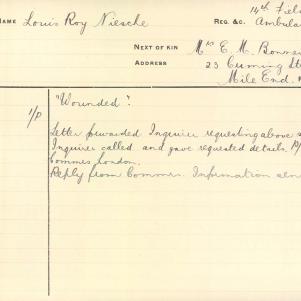 NAME Louis Roy Niesche REG. &C. 14th Fiel
Ambula
NEXT OF KIN Mrs E. M. Bonner
ADDRESS 23 Cuming St
Mile End.
"Wounded".
1/P Letter forwarded Inquirer requesting above
Inquirer called and gave requested details.
Commrs London.
Reply from Commrs. Information